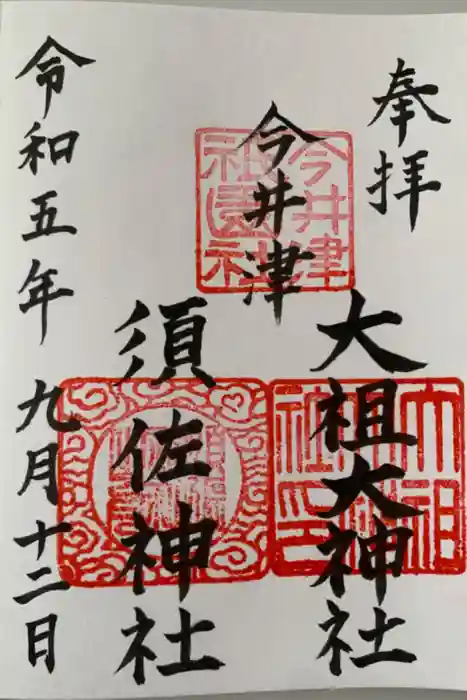 奉拝
今井津
大祖大神社
須佐神社
令和五年九月十二日
今井津
祇園社